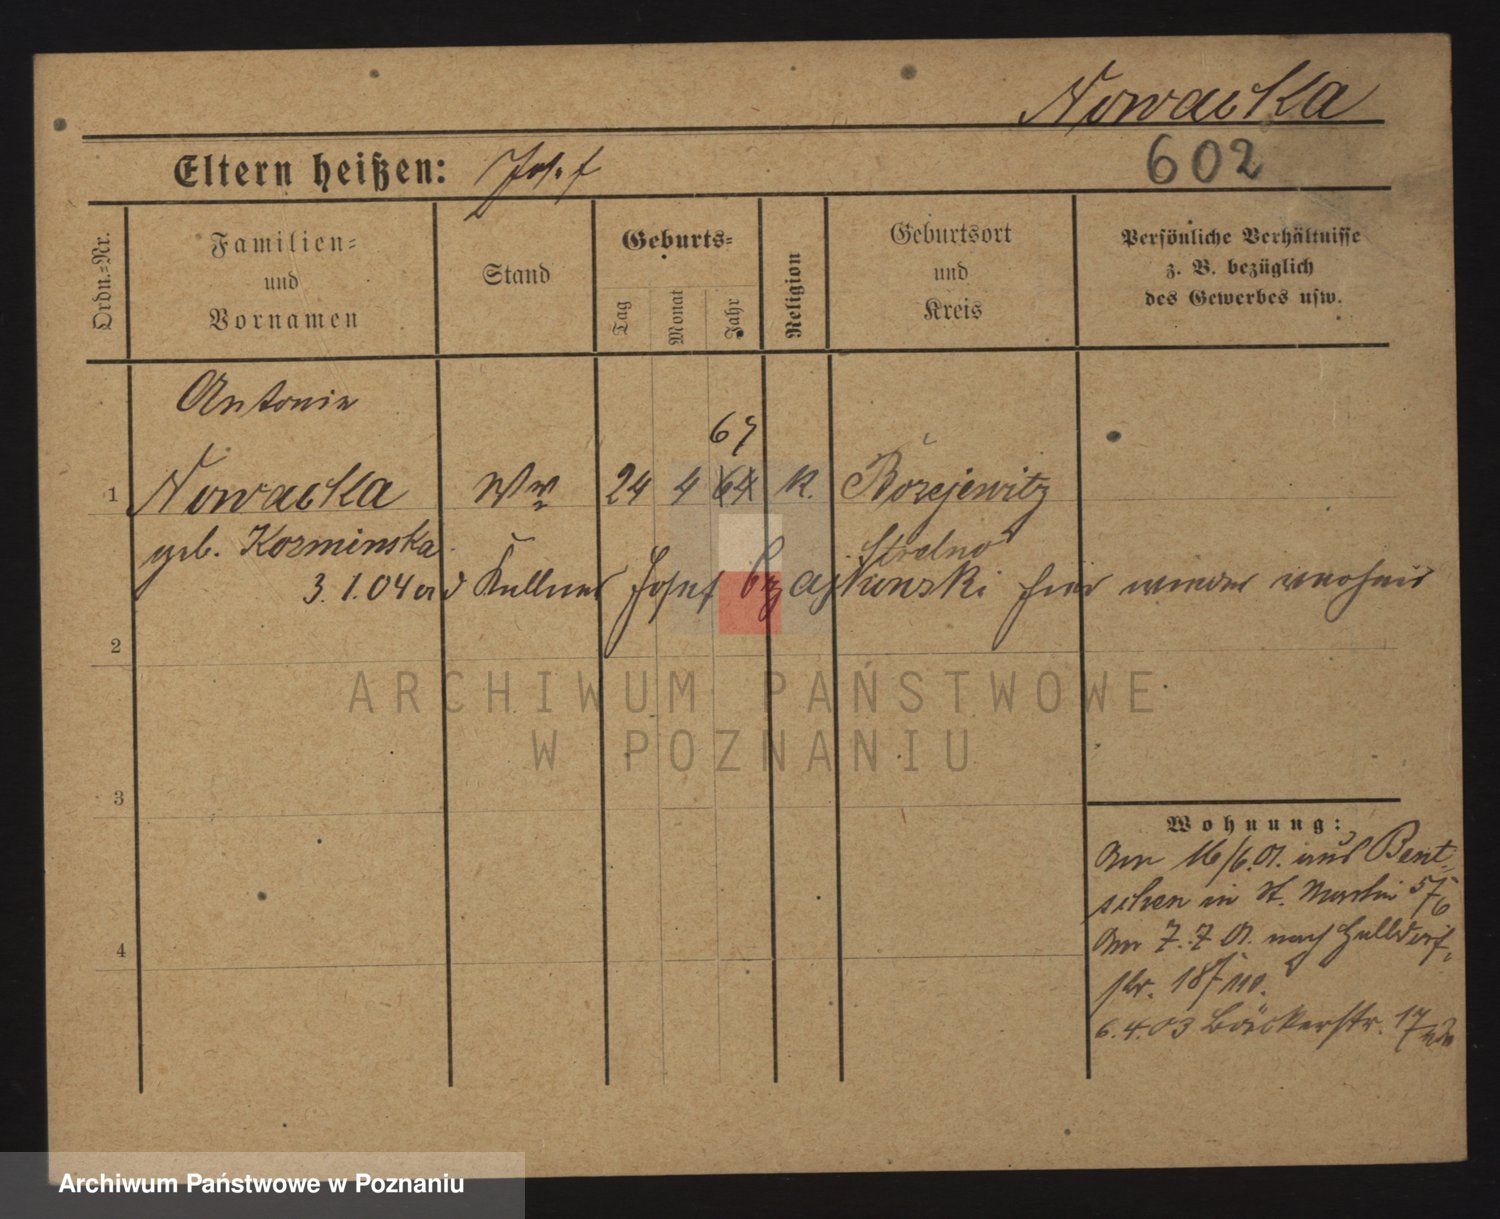 Nowacka
602
Eltern heißen: Josef
Ordn.-Nr.
Familien-
und
Vornamen
Stand
Geburts-
Tag
Monat
Jahr
Religion
Geburtsort
und
Kreis
Persönliche Verhältnisse
z. B. bezüglich
des Gewerbes usw.
Antonie
1 Nowacka Ww 24 4 64 k. Bozejewitz
geb. Kozminska Strelno
3.1.04 Kellner Josef hier
2
ARCHIWUM PAŃSTWOWE
W POZNANIU
3
Wohnung:
Am 16/6.01. aus Bent-
schen in St. Martin 57/6
4
Am 7.7.01. nach
str. 18/
6.4.03 Bäckerstr. 17
Archiwum Państwowe w Poznaniu